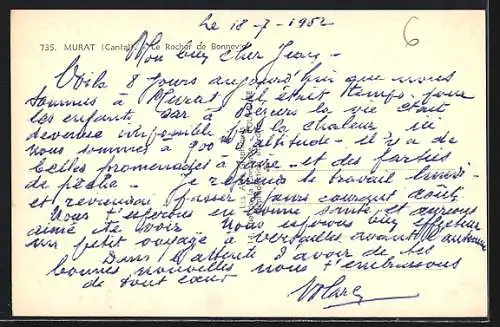 Le 18-7-1952
6
735. MURAT (Cantal) - Le Rocher de Bonnevie
Mon bien cher Jean -
Voilà 8 jours aujourd'hui que nous
sommes à Murat. Il était temps pour
les enfants, car à Béziers la vie était
devenue impossible par la chaleur. ici
nous sommes à 900m d'altitude - il y a de
belles promenades à faire - et des parties
de pêche - je reprends le travail lundi -
et reviendrai passer 8 jours courant Août
Nous t'espérons en bonne santé et aurions
aimé te voir Nous espérons bien effectuer
un petit voyage à Versailles avant l'automne
Dans l'attente d'avoir de tes
bonnes nouvelles nous t'embrassons
de tout cœur